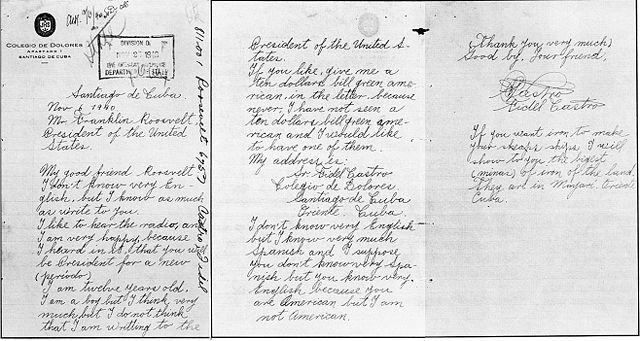 COLEGIO DE DOLORES
APARTADO 1
SANTIAGO DE CUBA
DIVISION O
DEPARTM OF STATE
Santiago de Cuba.
Nov 6 1940
Mr Franklin Roosvelt,
President of the United
States.
My good friend Roosvelt
I don't know very En-
glish, but I know as much
as write to you.
I like to hear the radio, and
I am very happy, because
I heard in it, that you will
be President for a new
(periodo)
I am twelve years old.
I am a boy but I think very
much but I do not think
that I am writting to the
811.001 Roosevelt 6757 Castro, Fidel
President of the United S-
tates.
If you like, give me a
ten dollars bill green ame-
rican in the letter, because
never, I have not seen a
ten dollars bill green ame-
rican and I would like
to have one of them.
My address is:
Sr Fidel Castro
Colegio de Dolores
Santiago de Cuba
Oriente. Cuba.
I don't know very English
but I know very much
Spanish and I suppose
you don't know very Spa-
nish but you know very
English because you
are American but I am
not American.
(Thank you very much)
Good by. Your friend,
Castro
Fidel Castro
If you want iron to make
your sheaps ships I will
show to you the bigest
(minas) of iron of the land.
They are in Mayarí. Oriente
Cuba.